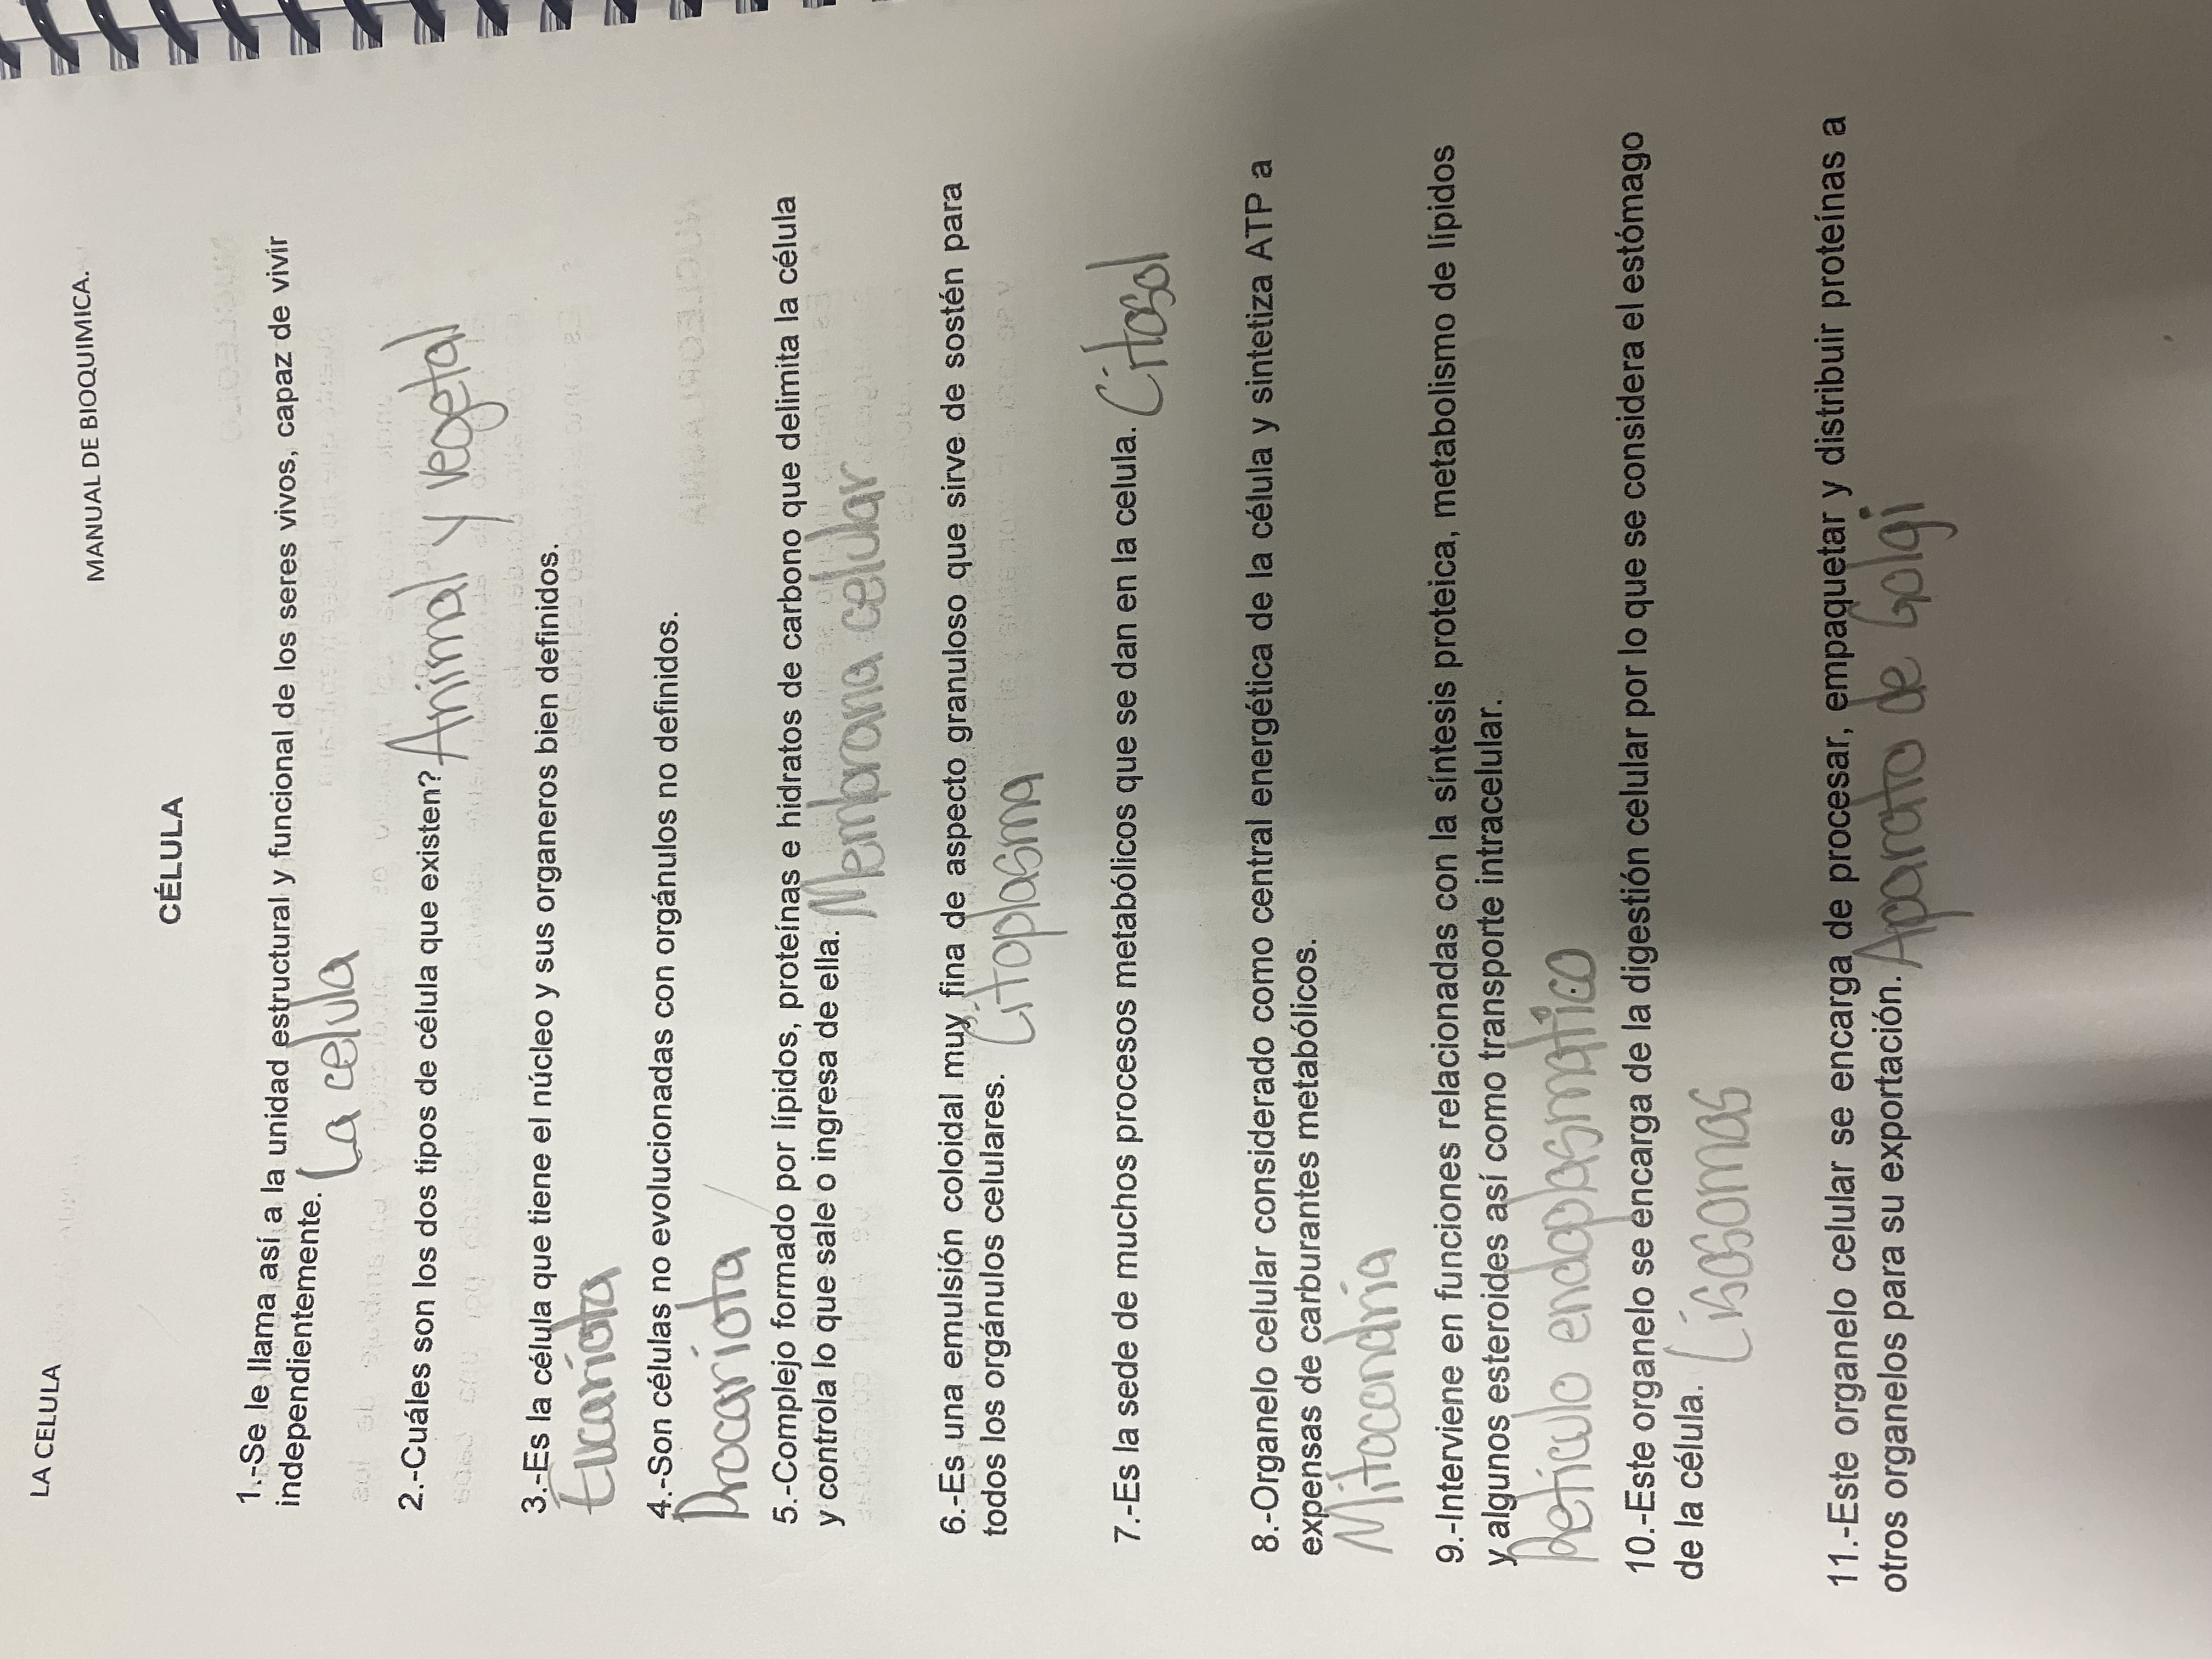 LA CELULA
MANUAL DE BIOQUIMICA.
CÉLULA
1.-Se le llama así a la unidad estructural y funcional de los seres vivos, capaz de vivir
independientemente. La celula
2.-Cuáles son los dos tipos de célula que existen? Animal y vegetal
3.-Es la célula que tiene el núcleo y sus organeros bien definidos.
Eucariota
4.-Son células no evolucionadas con orgánulos no definidos.
Procariota
5.-Complejo formado por lípidos, proteínas e hidratos de carbono que delimita la célula
y controla lo que sale o ingresa de ella. Membrana celular
6.-Es una emulsión coloidal muy fina de aspecto granuloso que sirve de sostén para
todos los orgánulos celulares. Citoplasma
7.-Es la sede de muchos procesos metabólicos que se dan en la celula. Citosol
8.-Organelo celular considerado como central energética de la célula y sintetiza ATP a
expensas de carburantes metabólicos.
Mitocondria
9.-Interviene en funciones relacionadas con la síntesis proteica, metabolismo de lípidos
y algunos esteroides así como transporte intracelular.
Reticulo endoplasmatico
10.-Este organelo se encarga de la digestión celular por lo que se considera el estómago
de la célula. Lisosomas
11.-Este organelo celular se encarga de procesar, empaquetar y distribuir proteínas a
otros organelos para su exportación. Aparato de Golgi